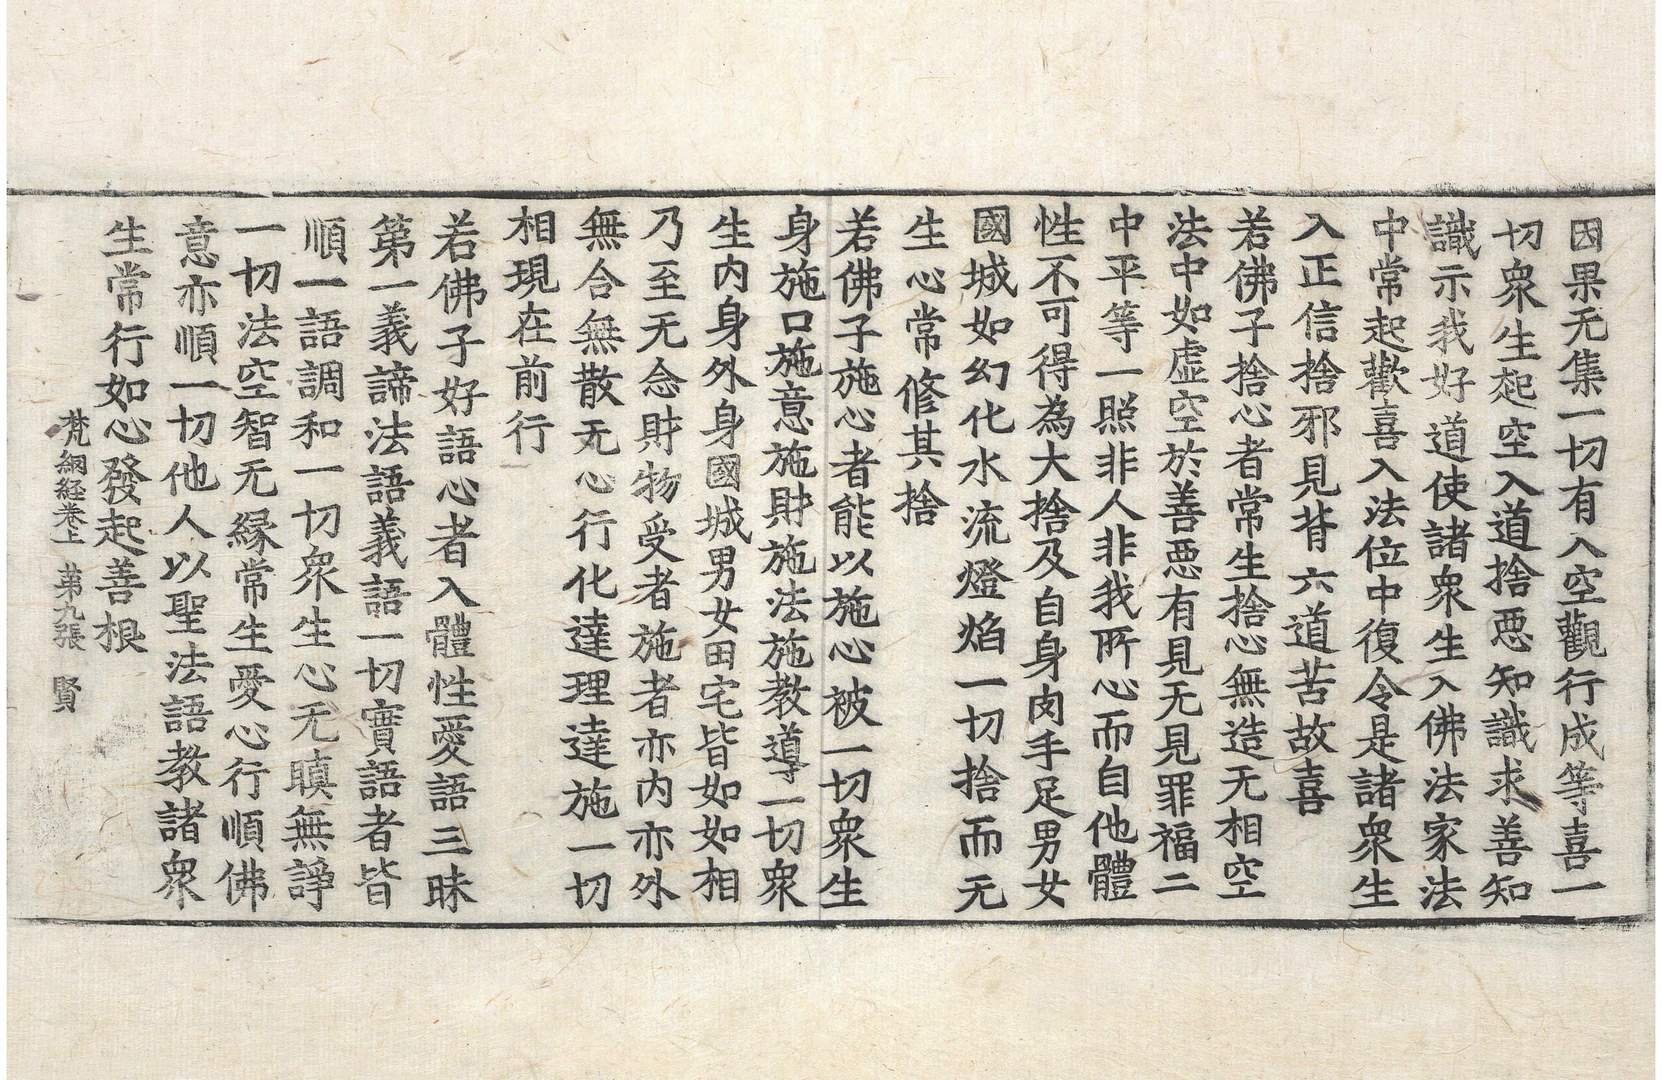 因果无集一切有入空觀行成等喜一
切衆生起空入道捨惡知識求善知
識示我好道使諸衆生入佛法家法
中常起歡喜入法位中復令是諸衆生
入正信捨邪見背六道苦故喜
若佛子捨心者常生捨心無造无相空
法中如虛空於善惡有見无見罪福二
中平等一照非人非我所心而自他體
性不可得為大捨及自身肉手足男女
國城如幻化水流燈焰一切捨而无
生心常修其捨
若佛子施心者能以施心被一切衆生
身施口施意施財施法施教導一切衆
生内身外身國城男女田宅皆如如相
乃至无念財物受者施者亦内亦外
無合無散无心行化達理達施一切
相現在前行
若佛子好語心者入體性愛語三昧
第一義諦法語義語一切實語者皆
順一語調和一切衆生心无瞋無諍
一切法空智无緣常生愛心行順佛
意亦順一切他人以聖法語教諸衆
生常行如心發起善根
梵網経卷上 苐九張 賢